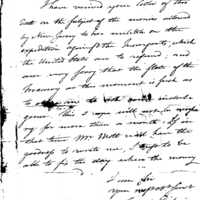 I have received your letter of this
date on the subject of the monies allowed
by New Jersey to her militia on the
expedition against the Insurgents, which
the United States are to refund; and
am very sorry that the state of the
Treasury at this moment is such as
to me to ask
gence. This I hope will not be necessary
for more than a month. If in
that time Mr Mott will have the
goodness to write me, I hope to be
able to fix the day when the money
I am Sir
your